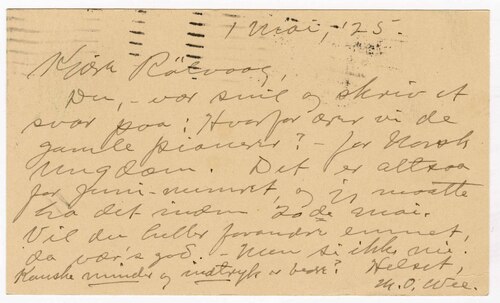 1 Mai, '25.
Kjære Rölvaag,
Du, - vær snil og skriv et
svar paa: Hvorfor ærer vi de
gamle pionerer? - for Norsk
Ungdom. Det er altsaa
for juni-numret, og jeg maatte
ha det inden 20de mai.
Vil du heller forandre emnet,
da vær's god. - Men si ikke nei.
Kanske mindre og indtryk er bedre? Helset,
M. O. Wee.